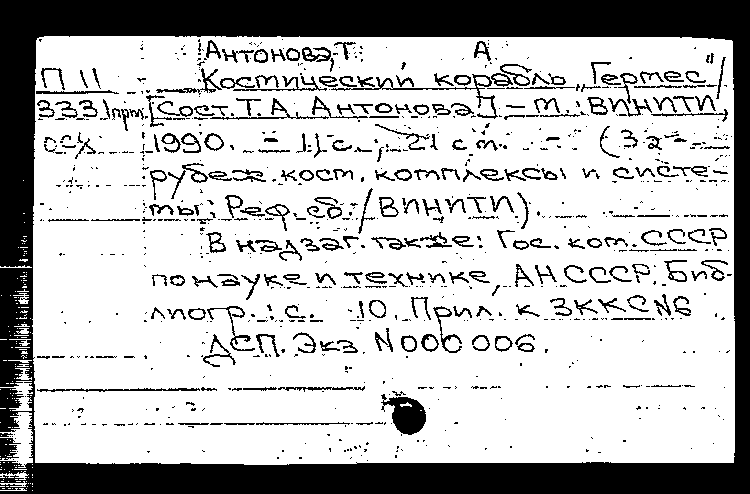 Антонова, Т. А
П 11 - Космический корабль "Гермес" /
333 1прт. [Сост. Т. А. Антонова]. - М. : ВИНИТИ,
осх 1990. - 11 с. ; 21 см. - (За-
рубеж. косм. комплексы и систе-
мы: Реф. сб. / ВИНИТИ).
В надзаг. также: Гос. ком. СССР
по науке и технике, АН СССР. Биб-
лиогр. : с. 10. Прил. к ЗККС N6
ДСП. Экз. N000 006.